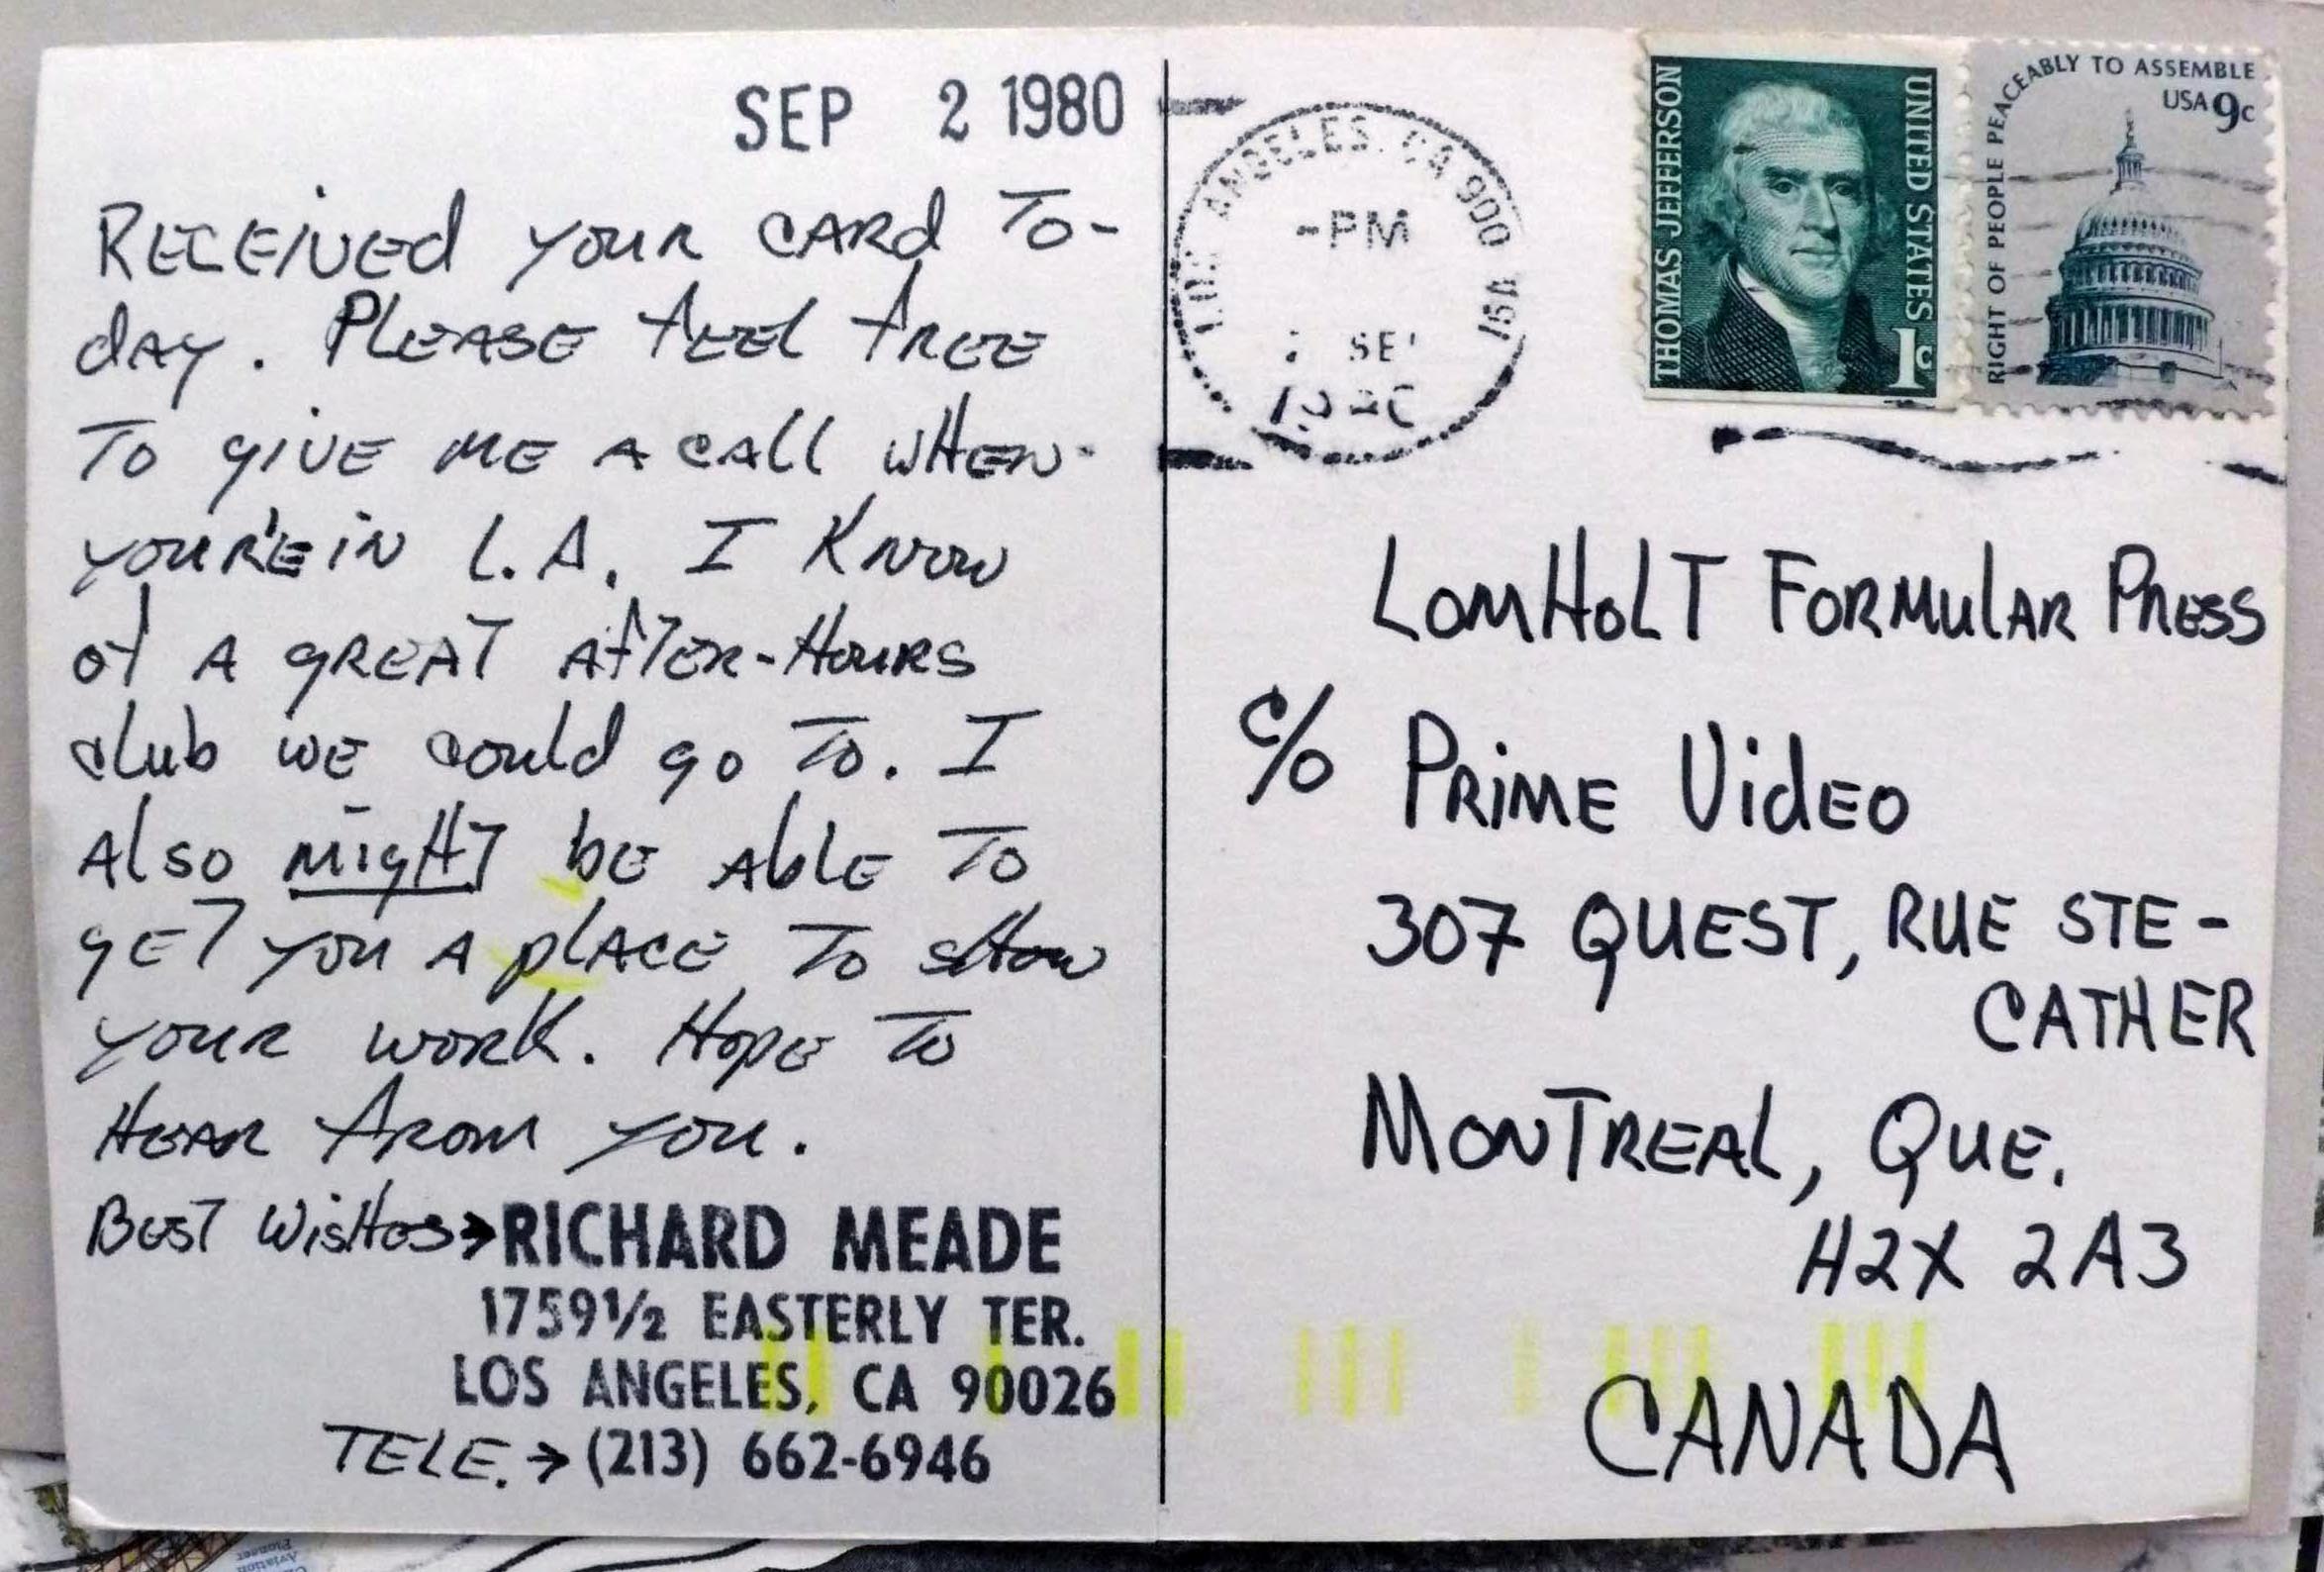 SEP 2 1980
RECEIVED YOUR CARD TO-
DAY. PLEASE FEEL FREE
TO GIVE ME A CALL WHEN
YOU'RE IN L.A. I KNOW
OF A GREAT AFTER-HOURS
CLUB WE COULD GO TO. I
ALSO MIGHT BE ABLE TO
GET YOU A PLACE TO SHOW
YOUR WORK. HOPE TO
HEAR FROM YOU.
BEST WISHES→RICHARD MEADE
1759½ EASTERLY TER.
LOS ANGELES, CA 90026
TELE.→(213) 662-6946
LOS ANGELES, CA 900
-PM
SE
THOMAS JEFFERSON
UNITED STATES
1c
RIGHT OF PEOPLE PEACEABLY TO ASSEMBLE
USA 9c
LOMHOLT FORMULAR PRESS
c/o PRIME VIDEO
307 QUEST, RUE STE-
CATHER
MONTREAL, QUE.
H2X 2A3
CANADA
Aviation
Pioneer